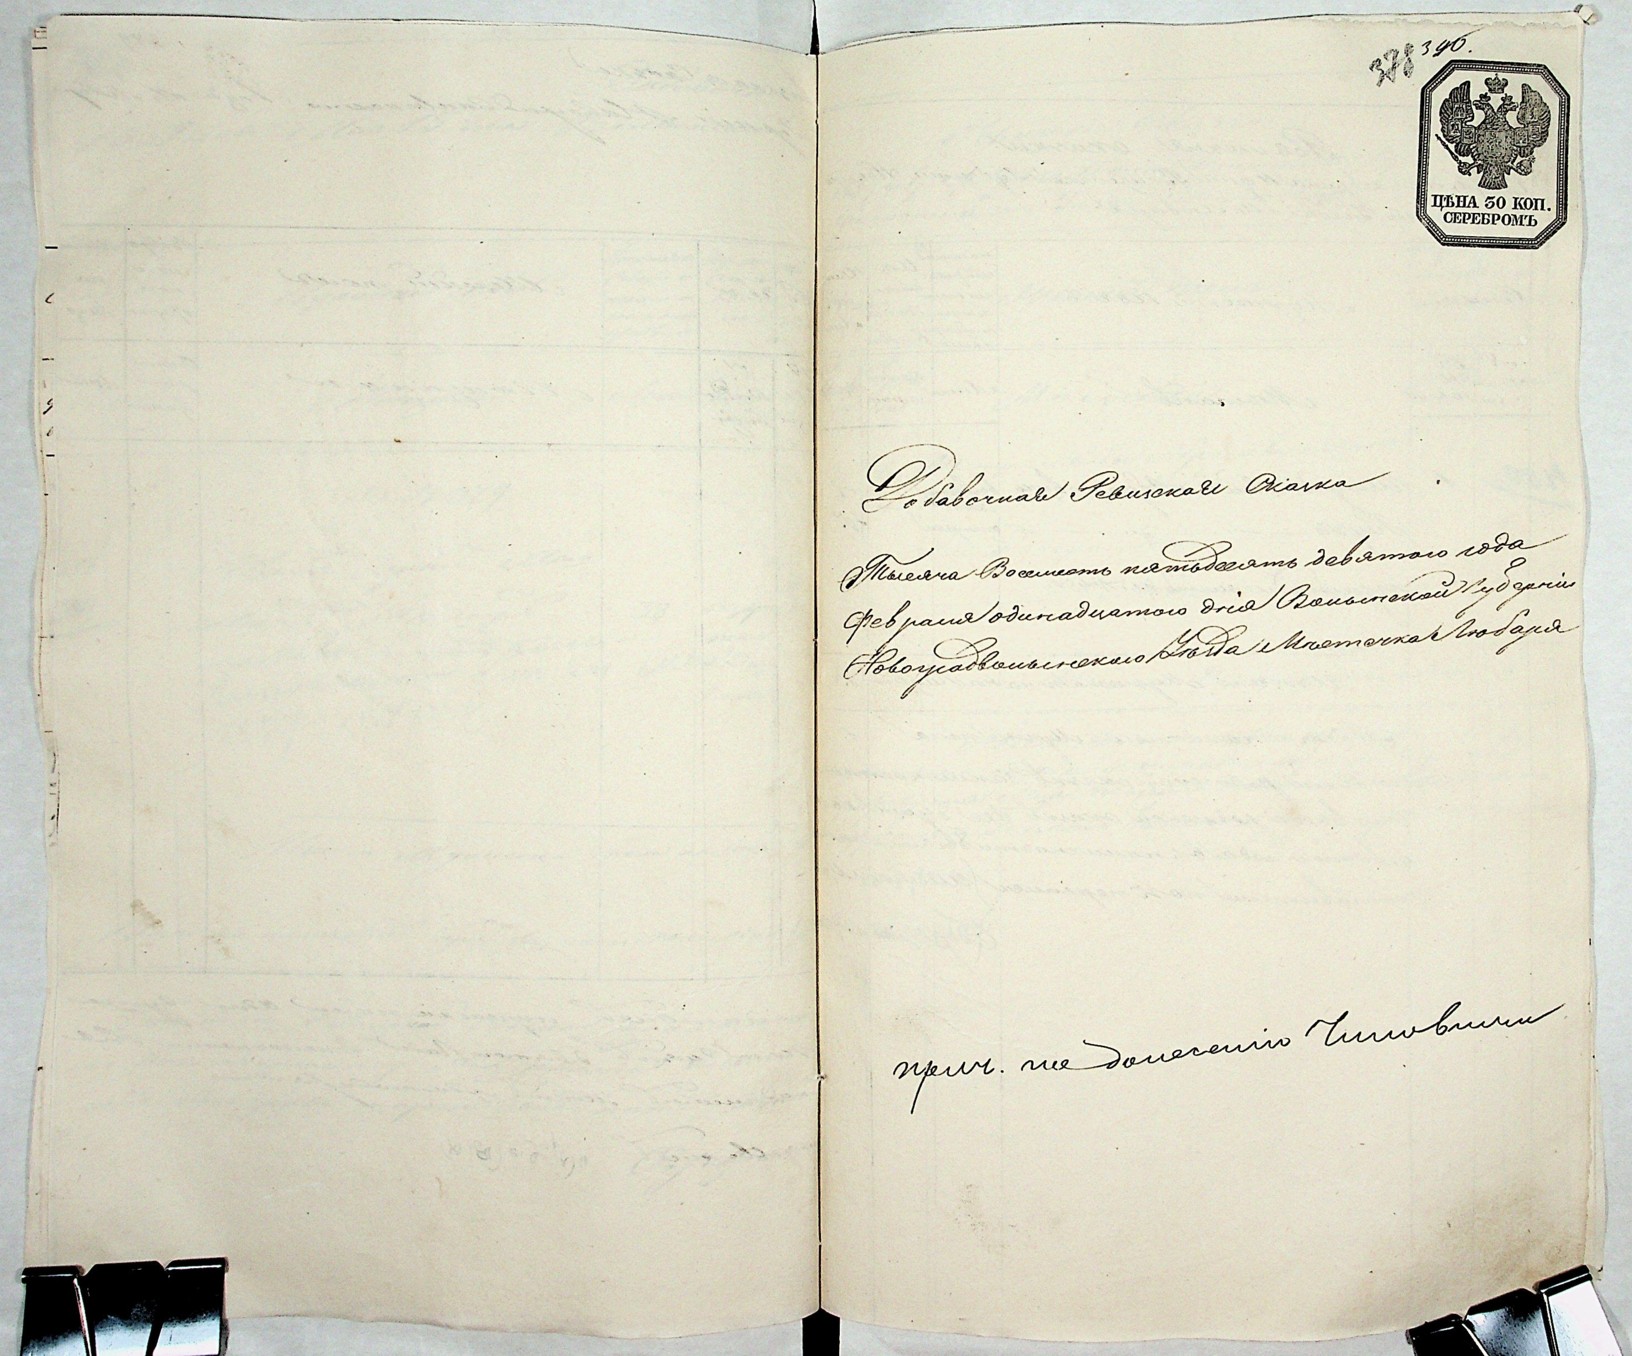 378 390.
ЦѢНА 30 КОП.
СЕРЕБРОМЪ
Добавочная Ревизская Сказка
Тысяча Восемьсотъ пятьдесятъ девятого года
февраля одинадцатого дня Волынской Губерніи
Новоградволынского Уѣзда Мѣстечка Любаря
прич. по донесенію